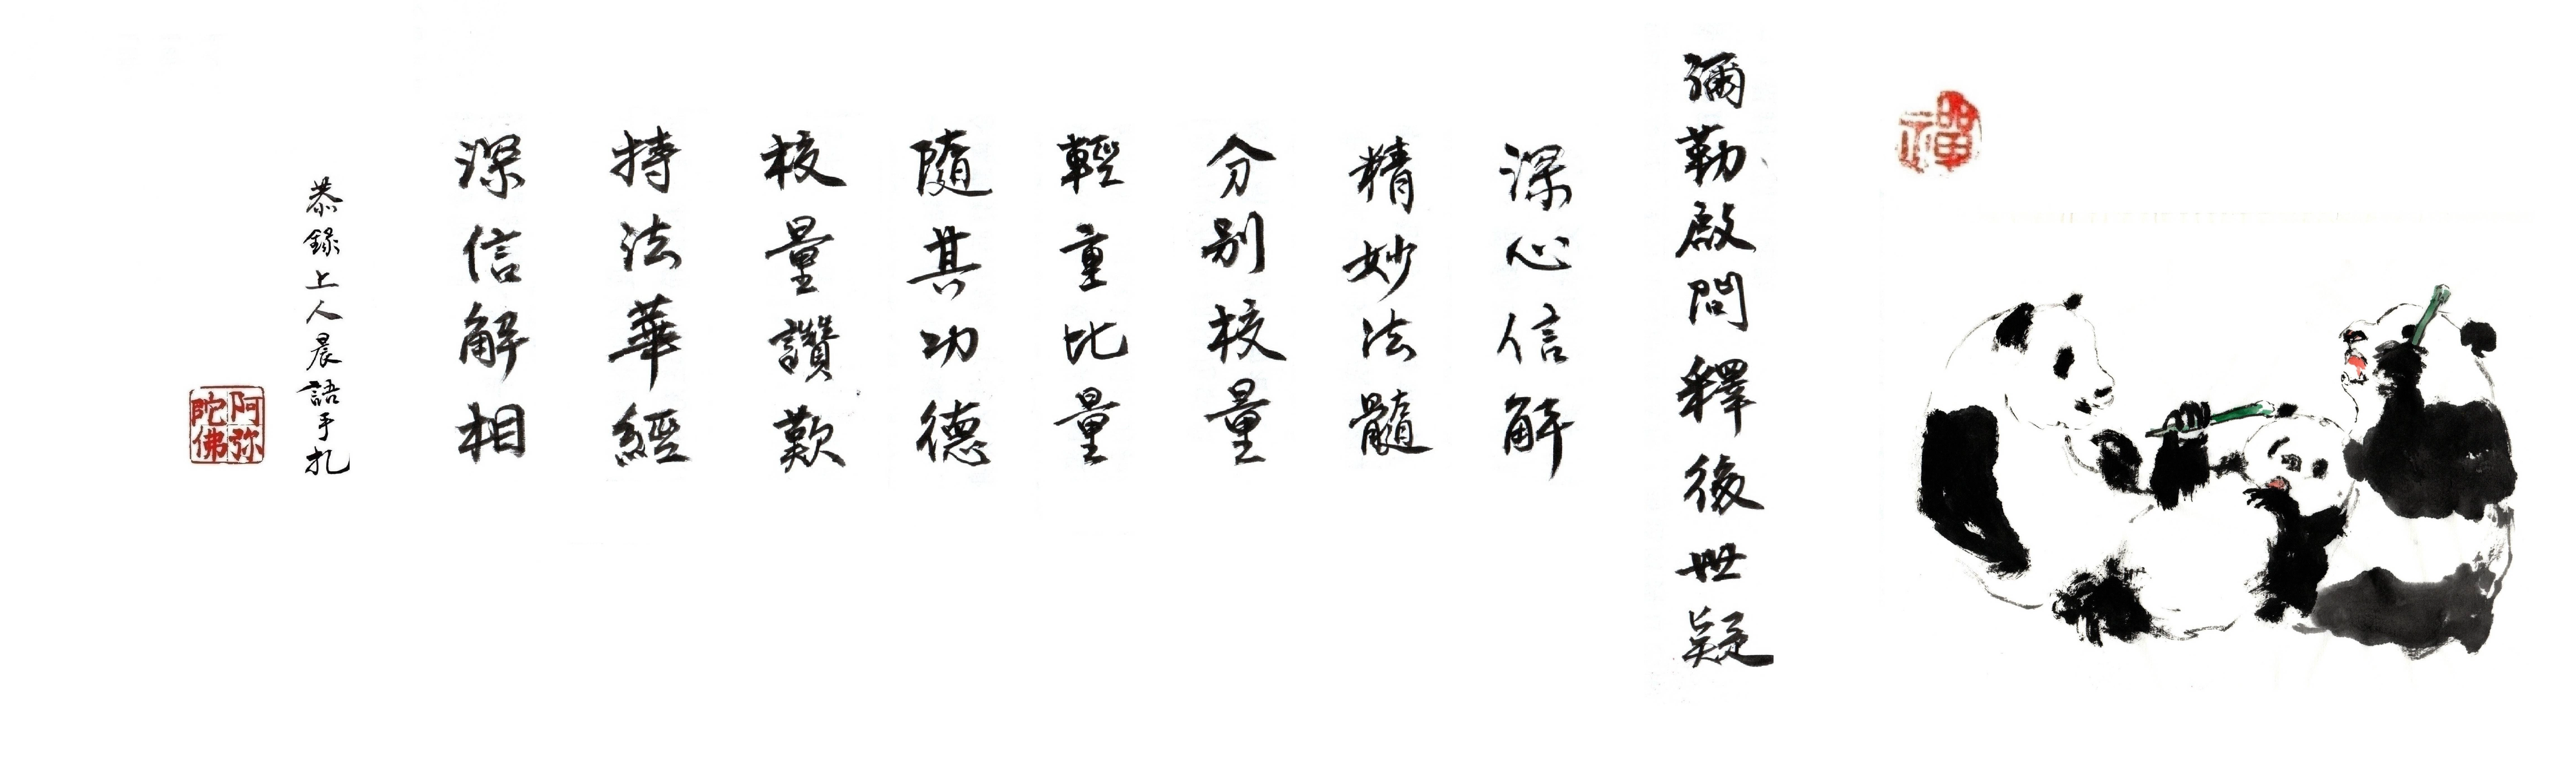 禪
彌勒啟問釋後世疑
深心信解
精妙法髓
分別校量
輕重比量
隨其功德
校量讚歎
持法華經
深信解相
恭錄上人晨語手扎
阿弥
陀佛